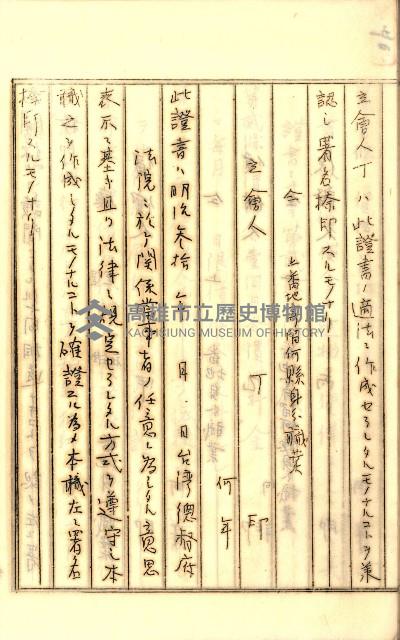 立會人丁ハ此證書ノ適法ニ作成セラレタルモノナルコトヲ承
認シ署名捺印スルモノナリ
仝 上番地 何縣身分職業
立會人 丁 印
何年
此證書ハ明治參拾 年 月 日台湾總督府
法院ニ於テ関係當事者ノ任意ニ為シタル意思
表示ニ基キ且ツ法律ニ規定セラレタル方式ヲ遵守シ本
職之ヲ作成シタルモノナルコトヲ確證スル為メ本職左ニ署名
捺印スルモノナリ
高雄市立歷史博物館
KAOHSIUNG MUSEUM OF HISTORY